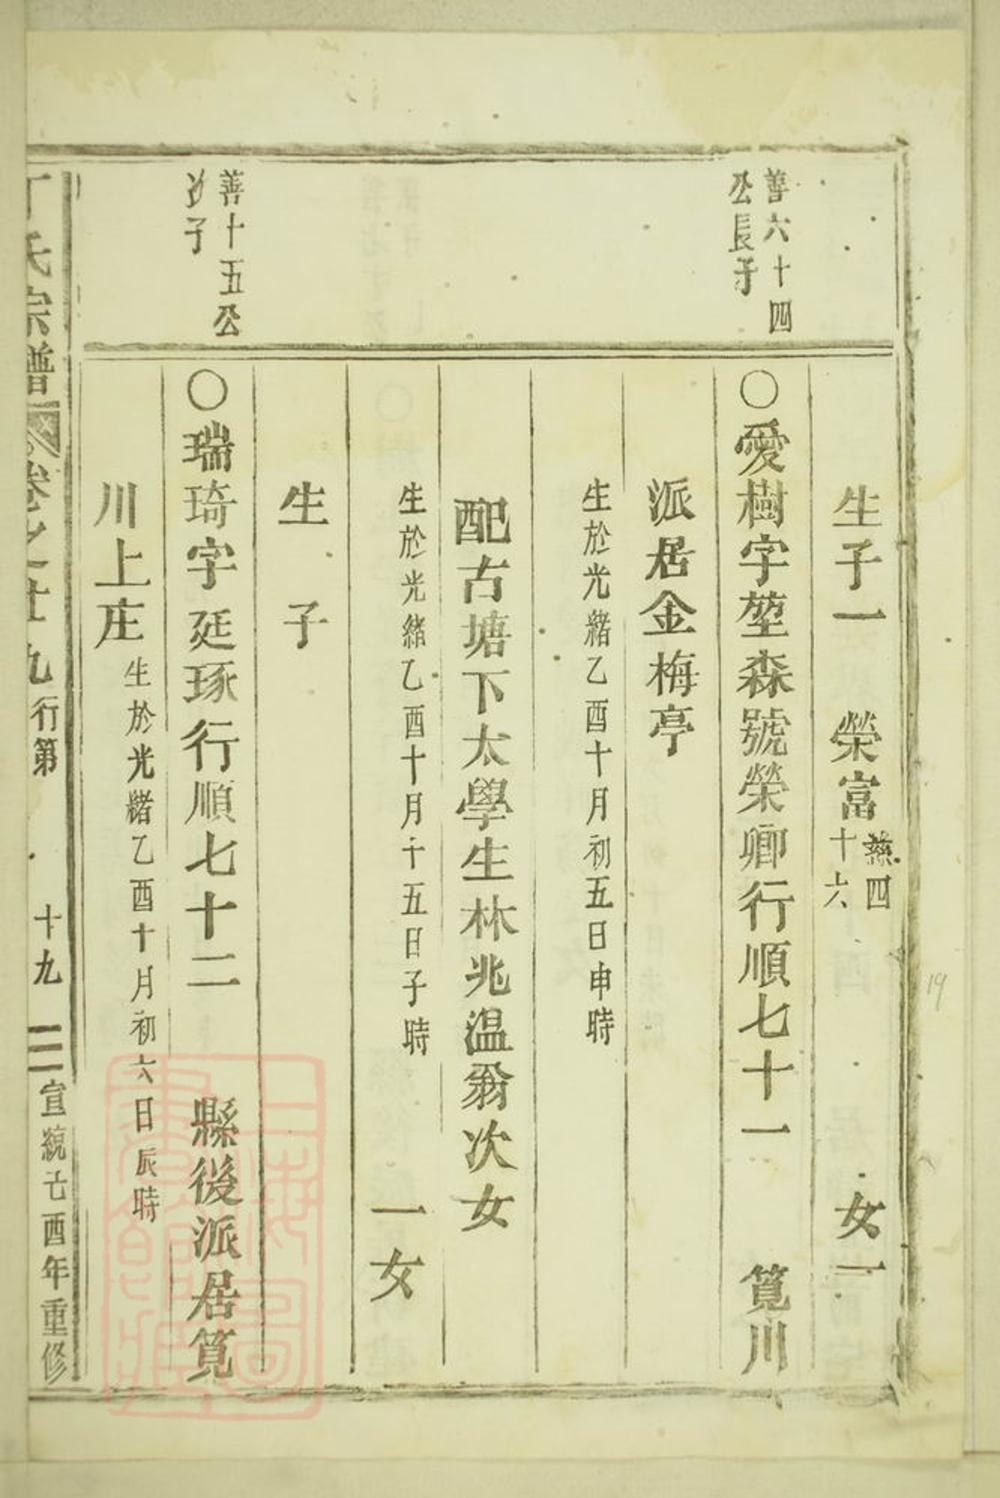 善六十四
公長子
生子一　榮富　慈四十六　女一
〇愛樹字堃森號榮卿行順七十一　筧川
派居金梅亭
生於光緒乙酉十月初五日申時
配古塘下太學生林兆温翁次女
生於光緒乙酉十月十五日子時　一女
生　子
善十五公
次子
〇瑞琦字延琢行順七十二　縣後派居筧
川上庄　生於光緒乙酉十月初六日辰時
丁氏宗譜　卷之廿九　行第　十九　宣統己酉年重修
19
上海圖書館藏